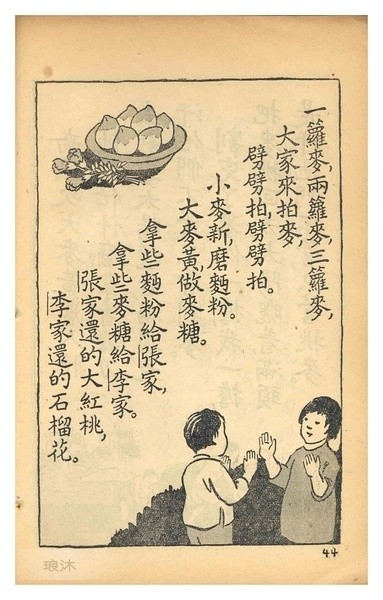 一籮麥，兩籮麥，三籮麥，
大家來拍麥，
劈劈拍，劈劈拍。
小麥新，磨麵粉。
大麥黃，做麥糖。
拿些麵粉給張家，
拿些麥糖給李家。
張家還的大紅桃，
李家還的石榴花。
44
琅沐